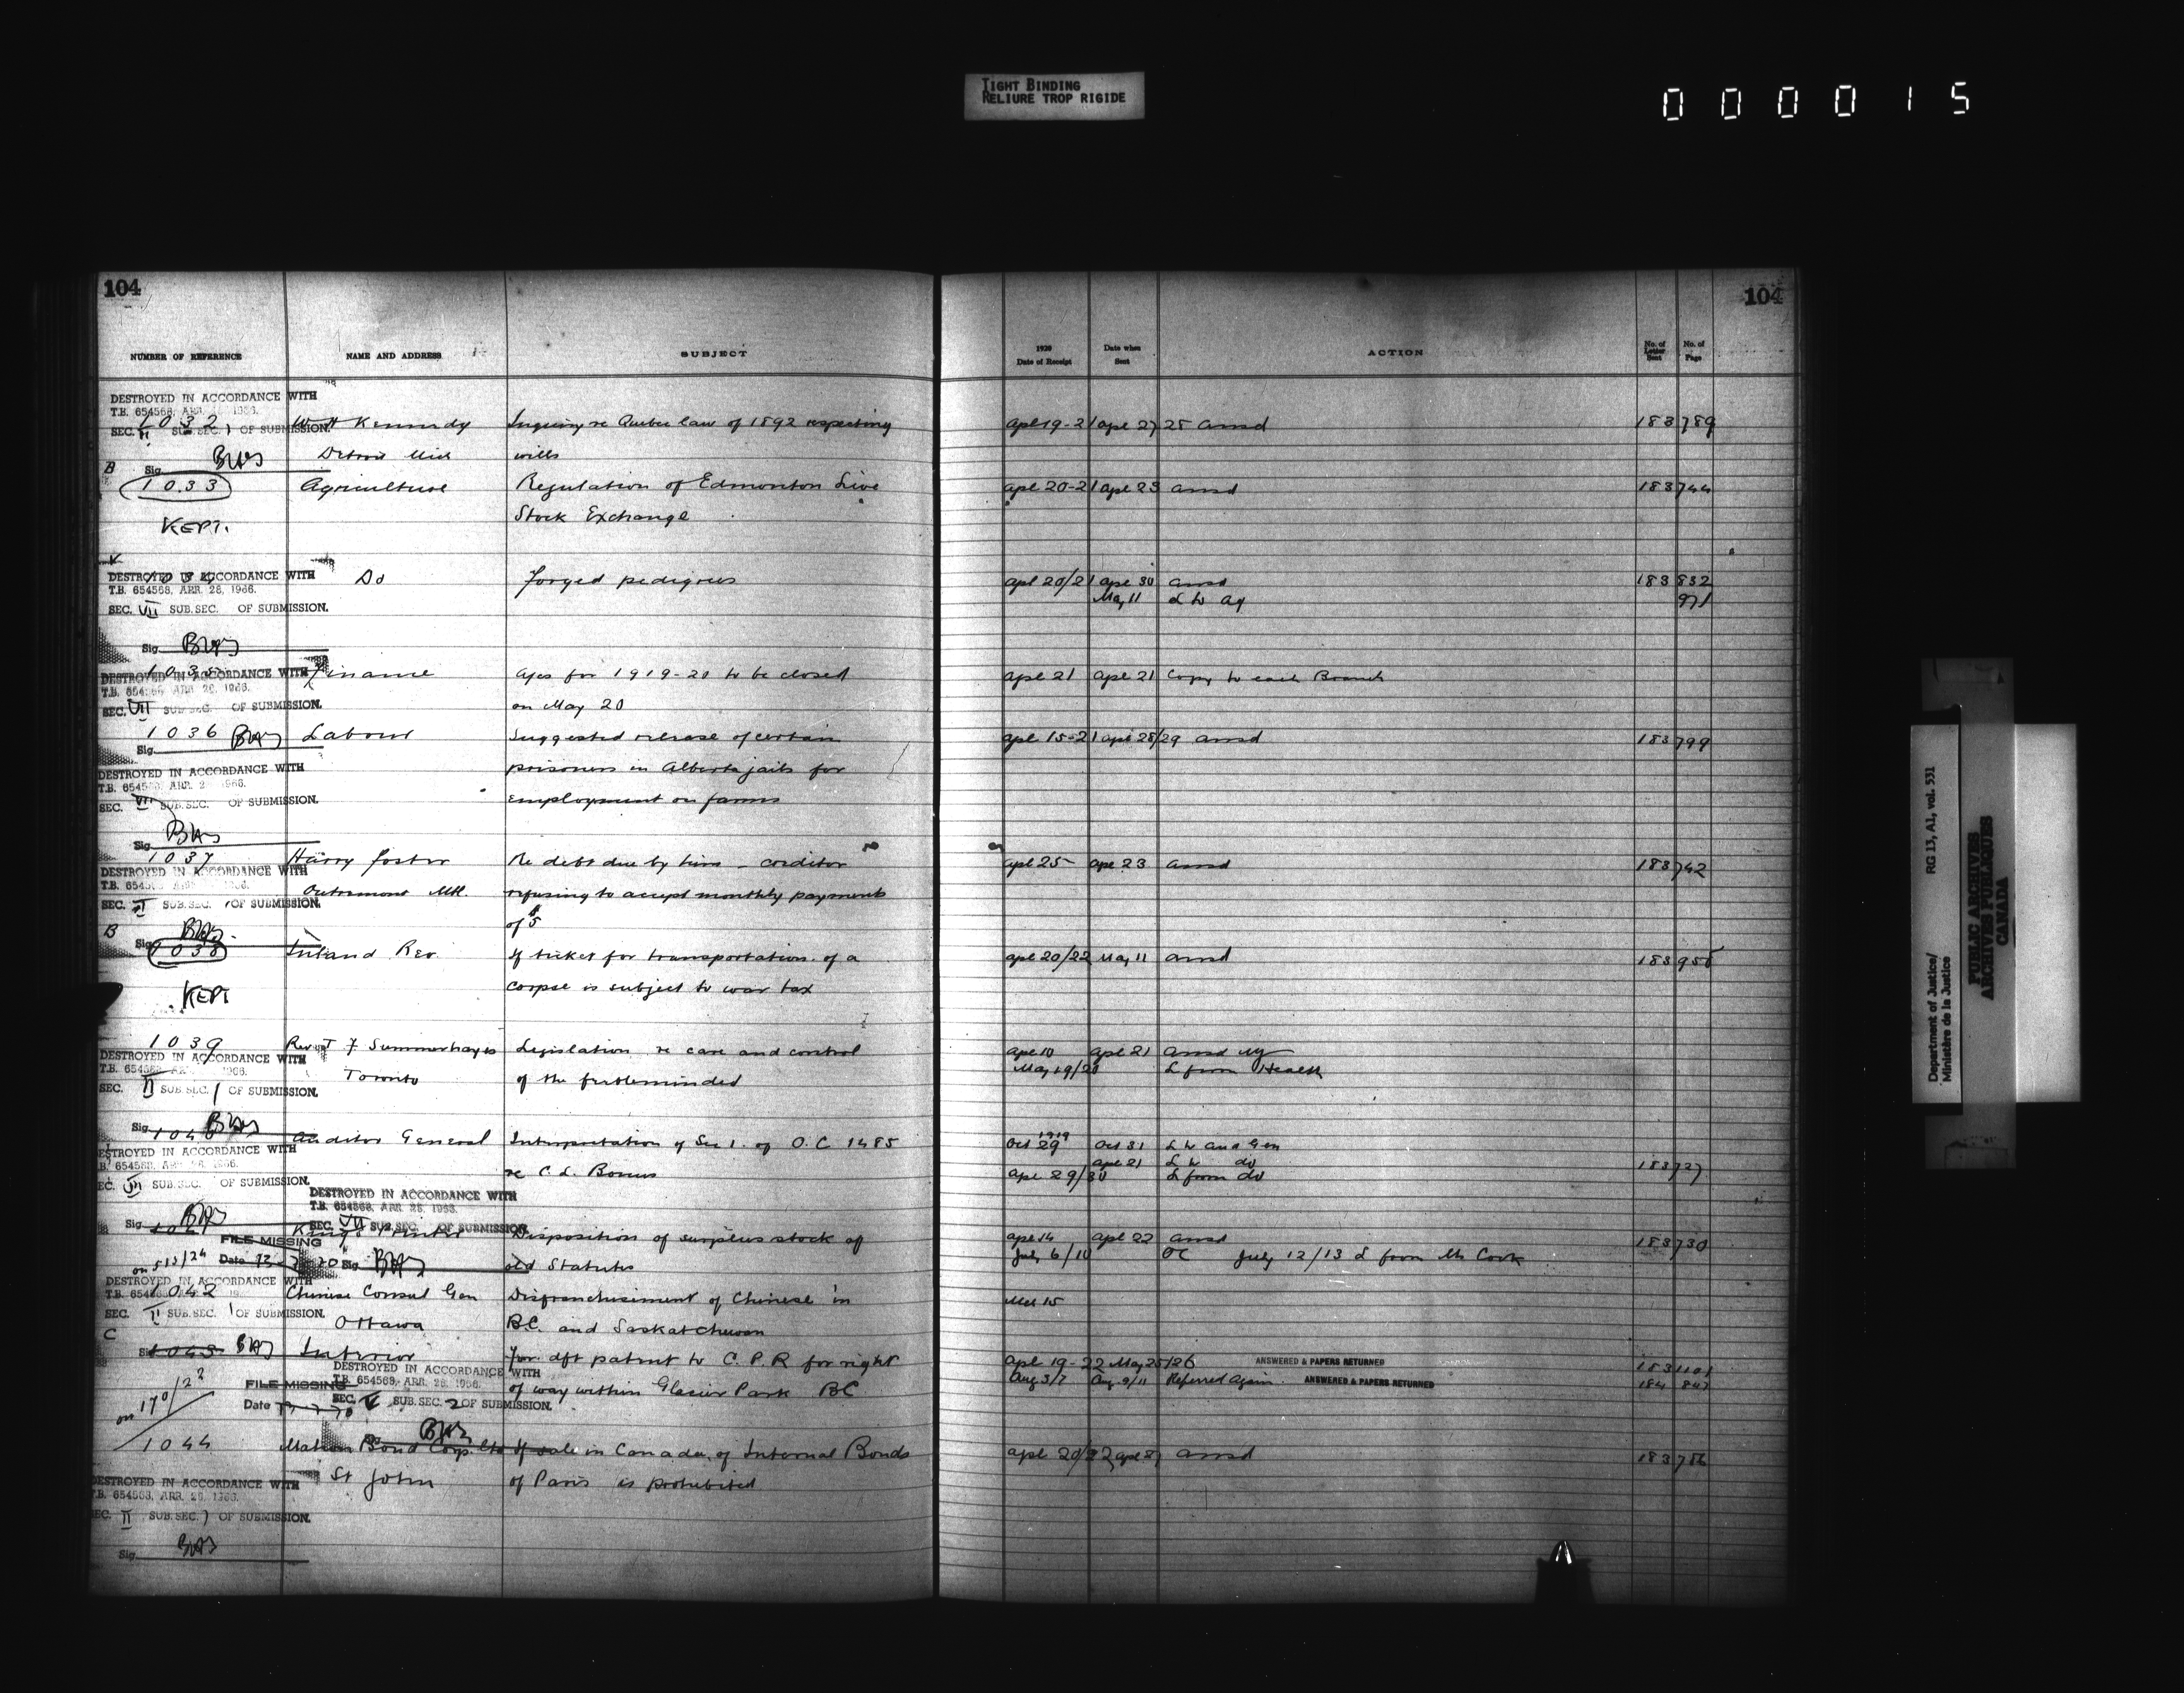 TIGHT BINDING
RELIURE TROP RIGIDE
000015
104
104
NUMBER OF REFERENCE NAME AND ADDRESS SUBJECT 1920 Date of Receipt Date when Sent ACTION No. of Letter Sent No. of Page
DESTROYED IN ACCORDANCE WITH
T.B. 654568, APR. 1966.
1032 Kennedy Inquiry re Quebec law of 1892 respecting apl 19-21 apl 27 28 ansd 183 789
SEC. II SUB.SEC. 1 OF SUBMISSION.
Detroit Mich wills
B Sig.
1033 Agriculture Regulation of Edmonton Live apl 20-21 apl 23 ansd 183 744
KEPT. Stock Exchange
DESTROYED IN ACCORDANCE WITH
1034 Do Forged pedigrees apl 20/21 apl 30 ansd 183 832
T.B. 654568, APR. 28, 1966.
May 11 L to Ag 971
SEC. VII SUB.SEC. OF SUBMISSION.
Sig.
1035 Finance a/cs for 1919-20 to be closed apl 21 apl 21 Copy to each Branch
DESTROYED IN ACCORDANCE WITH
T.B. 1966.
SEC. VII SUB.SEC. OF SUBMISSION.
on May 20
1036 Labour Suggested release of certain apl 15-21 apl 28/29 ansd 183 799
Sig.
prisoners in Alberta jails for
DESTROYED IN ACCORDANCE WITH
T.B. 1966.
SEC. VII SUB.SEC. OF SUBMISSION.
employment on farms
Sig.
1037 Harry Foster Re debt due by him - creditor apl 25 apl 23 ansd 183 742
DESTROYED IN ACCORDANCE WITH
T.B. 1966.
Outremont Mtl. refusing to accept monthly payments
SEC. II SUB.SEC. 1 OF SUBMISSION.
of $5
B Sig.
1038 Inland Rev If ticket for transportation of a apl 20/22 May 11 ansd 183 955
KEPT corpse is subject to war tax
1039 Rev T J Summerhayes Legislation re care and control apl 10 apl 21 ansd
DESTROYED IN ACCORDANCE WITH
T.B. 1966.
May 19/20 L from Health
Toronto of the feebleminded
SEC. II SUB.SEC. 1 OF SUBMISSION.
Sig.
1919
1040 Auditor General Interpretation of Sec 1. of O.C. 1485 Oct 29 Oct 31 L to Aud Gen
DESTROYED IN ACCORDANCE WITH
apl 21 L to do 183 727
654568, 1966.
re C.L. Bonus apl 29/30 L from do
SEC. VII SUB.SEC. OF SUBMISSION.
DESTROYED IN ACCORDANCE WITH
T.B. 654568, APR. 28, 1966.
SEC. VII SUB.SEC. OF SUBMISSION.
Sig.
1041 Kings Printer Disposition of surplus stock of apl 14 apl 22 ansd 183 730
FILE MISSING
Date
Sig.
old Statutes July 6/10 OC July 12/13 L from Mr Cook
on 513/24
DESTROYED IN ACCORDANCE WITH
1042 Chinese Consul Gen Disfranchisement of Chinese in Mch 15
SEC. II SUB.SEC. 1 OF SUBMISSION.
Ottawa B.C. and Saskatchewan
C Sig.
1043 Interior For dft patent to C.P.R for right apl 19-22 May 25/26 ANSWERED & PAPERS RETURNED 183 1101
DESTROYED IN ACCORDANCE WITH
T.B. 654568, APR. 28, 1966.
of way within Glacier Park BC Aug 3/7 Aug 9/11 Referred Again. ANSWERED & PAPERS RETURNED 184 847
FILE MISSING
on 170/22
Date
SEC. V SUB.SEC. 2 OF SUBMISSION.
1044 Bond Corp. Ltd If sale in Canada of Internal Bonds apl 20/22 apl 27 ansd 183 786
St John of Paris is prohibited
DESTROYED IN ACCORDANCE WITH
T.B. 654568, APR. 28, 1966.
SEC. II SUB.SEC. 1 OF SUBMISSION.
Sig.
Department of Justice/
Ministère de la Justice
RG 13, A1, vol. 531
PUBLIC ARCHIVES
ARCHIVES PUBLIQUES
CANADA